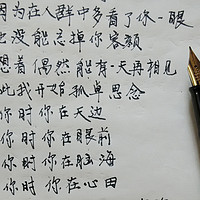 因为在人群中多看了你一眼
也没能忘掉你容颜
想着偶然能有一天再相见
此我开始孤单思念
你时你在天边
你时你在眼前
你时你在脑海
你时你在心田